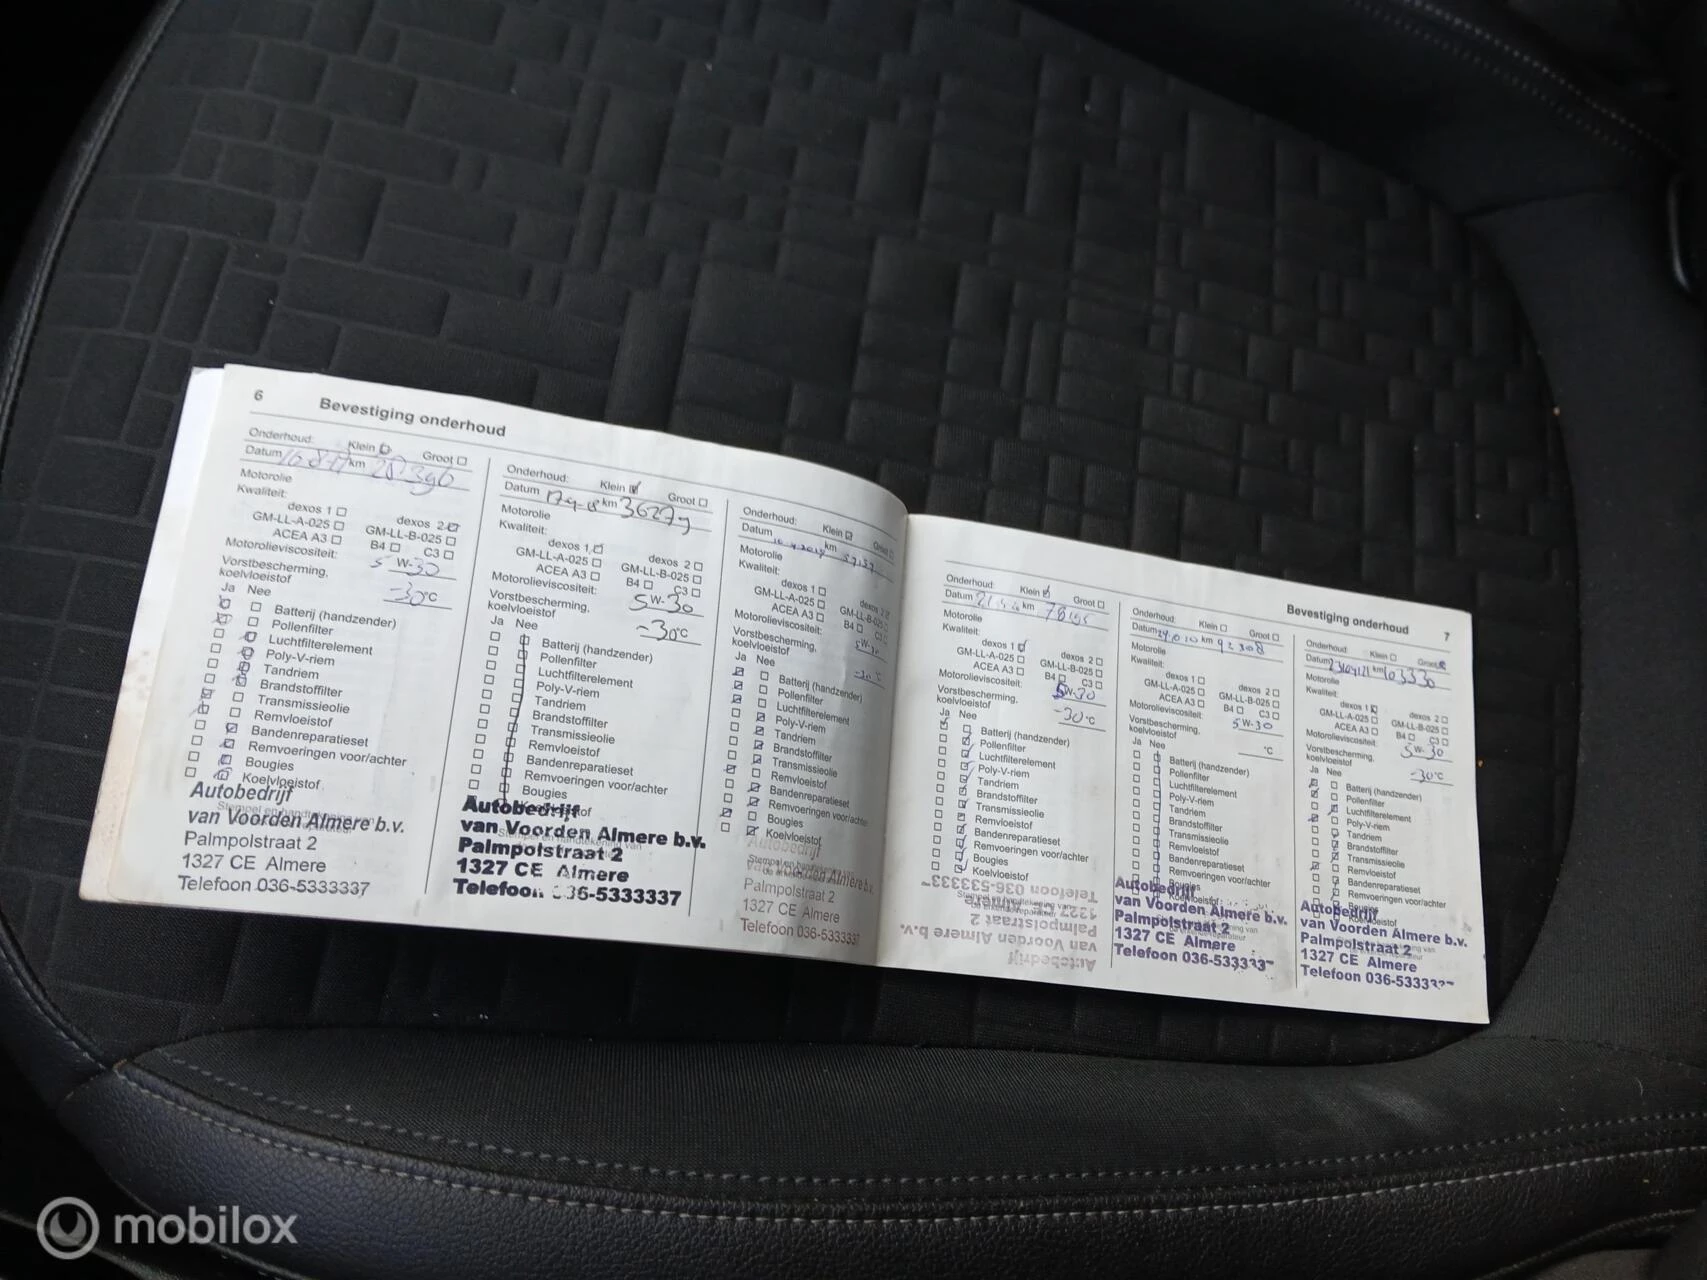 6 Bevestiging onderhoud
Onderhoud: Klein Groot
Datum km
Motorolie
Kwaliteit:
dexos 1 dexos 2
GM-LL-A-025 GM-LL-B-025
ACEA A3 B4 C3
Motorolieviscositeit: 5 W-30
Vorstbescherming,
koelvloeistof -30°C
Ja Nee
Batterij (handzender)
Pollenfilter
Luchtfilterelement
Poly-V-riem
Tandriem
Brandstoffilter
Transmissieolie
Remvloeistof
Bandenreparatieset
Remvoeringen voor/achter
Bougies
Koelvloeistof
Autobedrijf
van Voorden Almere b.v.
Palmpolstraat 2
1327 CE Almere
Telefoon 036-5333337
Onderhoud: Klein Groot
Datum km
Motorolie
Kwaliteit:
dexos 1 dexos 2
GM-LL-A-025 GM-LL-B-025
ACEA A3 B4 C3
Motorolieviscositeit: 5W-30
Vorstbescherming,
koelvloeistof -30°C
Ja Nee
Batterij (handzender)
Pollenfilter
Luchtfilterelement
Poly-V-riem
Tandriem
Brandstoffilter
Transmissieolie
Remvloeistof
Bandenreparatieset
Remvoeringen voor/achter
Bougies
Koelvloeistof
Autobedrijf
van Voorden Almere b.v.
Palmpolstraat 2
1327 CE Almere
Telefoon 036-5333337
Onderhoud: Klein
Datum km
Motorolie
Kwaliteit:
dexos 1 dexos 2
GM-LL-A-025 GM-LL-B-025
ACEA A3 B4 C3
Motorolieviscositeit: 5W-30
Vorstbescherming,
koelvloeistof -30°C
Ja Nee
Batterij (handzender)
Pollenfilter
Luchtfilterelement
Poly-V-riem
Tandriem
Brandstoffilter
Transmissieolie
Remvloeistof
Bandenreparatieset
Remvoeringen voor/achter
Bougies
Koelvloeistof
Autobedrijf
van Voorden Almere b.v.
Palmpolstraat 2
1327 CE Almere
Telefoon 036-5333337
Bevestiging onderhoud 7
Onderhoud: Klein Groot
Datum km
Motorolie
Kwaliteit:
dexos 1 dexos 2
GM-LL-A-025 GM-LL-B-025
ACEA A3 B4 C3
Motorolieviscositeit: 5W-30
Vorstbescherming,
koelvloeistof -30°C
Ja Nee
Batterij (handzender)
Pollenfilter
Luchtfilterelement
Poly-V-riem
Tandriem
Brandstoffilter
Transmissieolie
Remvloeistof
Bandenreparatieset
Remvoeringen voor/achter
Bougies
Koelvloeistof
Autobedrijf
van Voorden Almere b.v.
Palmpolstraat 2
1327 CE Almere
Telefoon 036-5333337
Onderhoud: Klein Groot
Datum km 92308
Motorolie
Kwaliteit:
dexos 1 dexos 2
GM-LL-A-025 GM-LL-B-025
ACEA A3 B4 C3
Motorolieviscositeit: 5W-30
Vorstbescherming,
koelvloeistof °C
Ja Nee
Batterij (handzender)
Pollenfilter
Luchtfilterelement
Poly-V-riem
Tandriem
Brandstoffilter
Transmissieolie
Remvloeistof
Bandenreparatieset
Remvoeringen voor/achter
Bougies
Koelvloeistof
Autobedrijf
van Voorden Almere b.v.
Palmpolstraat 2
1327 CE Almere
Telefoon 036-5333337
Onderhoud: Klein Groot
Datum 23/04/21 km 103330
Motorolie
Kwaliteit:
dexos 1 dexos 2
GM-LL-A-025 GM-LL-B-025
ACEA A3 B4 C3
Motorolieviscositeit: 5W-30
Vorstbescherming,
koelvloeistof -30°C
Ja Nee
Batterij (handzender)
Pollenfilter
Luchtfilterelement
Poly-V-riem
Tandriem
Brandstoffilter
Transmissieolie
Remvloeistof
Bandenreparatieset
Remvoeringen voor/achter
Bougies
Koelvloeistof
Autobedrijf
van Voorden Almere b.v.
Palmpolstraat 2
1327 CE Almere
Telefoon 036-5333337
mobilox